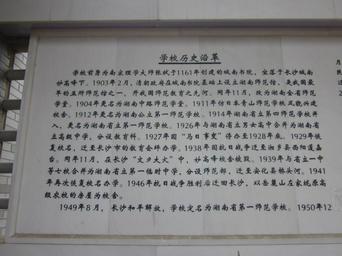 学校历史沿革
学校前身为南宋理学大师张栻于1161年创建的城南书院，坐落于长沙城南
妙高峰下。1903年2月，清朝政府在城南书院基础上设立湖南师范馆，是我国最
早的五所师范馆之一，开我国师范教育之先河。同年11月，改为湖南全省师范
学堂。1904年更名为湖南中路师范学堂。1911年仿日本青山师范学校风貌兴建
校舍。1912年更名为湖南公立第一师范学校。1914年湖南省立第四师范学校并
入，更名为湖南省立第一师范学校。1926年与湖南省立第六高中合并为湖南省
立高级中学，分设教育科。1927年因“马日事变”停办至1928年底。1929年恢
复校名，迁至长沙市的教育会坪办学。1938年因抗日战争迁至湘乡县
庙。同年11月，在长沙“文夕大火”中，妙高峰校舍被毁。1939年与省立一中
等七校合并为湖南省立第一临时中学，分设师范部，迁至安化县桥头河。1941
年再次恢复校名办学。1946年抗日战争胜利后迁回长沙，以岳麓山左家垅原高
级农校的房屋为校舍。
1949年8月，长沙和平解放，学校定名为湖南省第一师范学校。1950年12
月